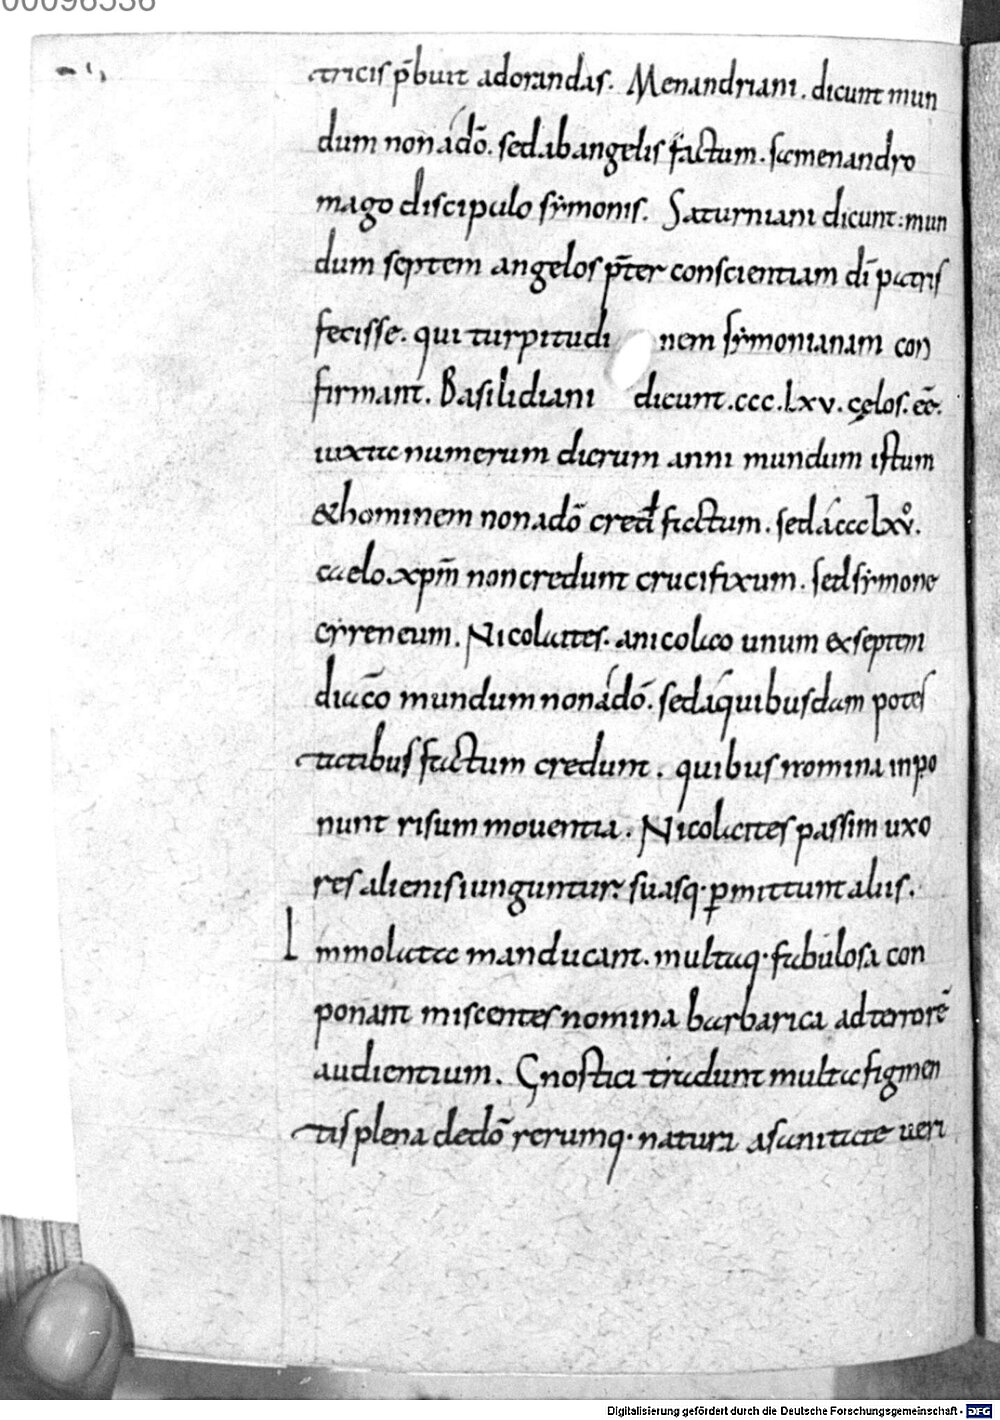 00096536
tricis p̄buit adorandas. Menandriani. dicunt mun
dum non a dō. sed ab angelis factum. sa menandro
mago discipulo sẏmonis. Saturniani dicunt. mun
dum septem angelos p̄ter conscientiam dī patris
fecisse. qui turpitudi nem sẏmonianam con
firmant. Basilidiani dicunt .ccc.lxv. cęlos. eē.
iuxta numerum dierum anni mundum istum
& hominem non a dō cred̄t factum. sed a ccclxv̊.
caelo. xp̄m non credunt crucifixum. sed sẏmone
cẏreneum. Nicolaites. a nicolao unum ex septem
diac̄o mundum non a dō. sed a quibusdam potes
tatibus factum credunt. quibus nomina inpo
nunt risum mouentia. Nicolaites passim uxo
res alienis iunguntur. suasq· ꝑmittunt aliis.
Immolata manducant. multaq· fabulosa con
ponant miscentes nomina barbarica ad terrorē
audientium. Gnostici tradunt multa figmen
tis plena de dō rerumq· natura a sanitate ueri
Digitalisierung gefördert durch die Deutsche Forschungsgemeinschaft - DFG